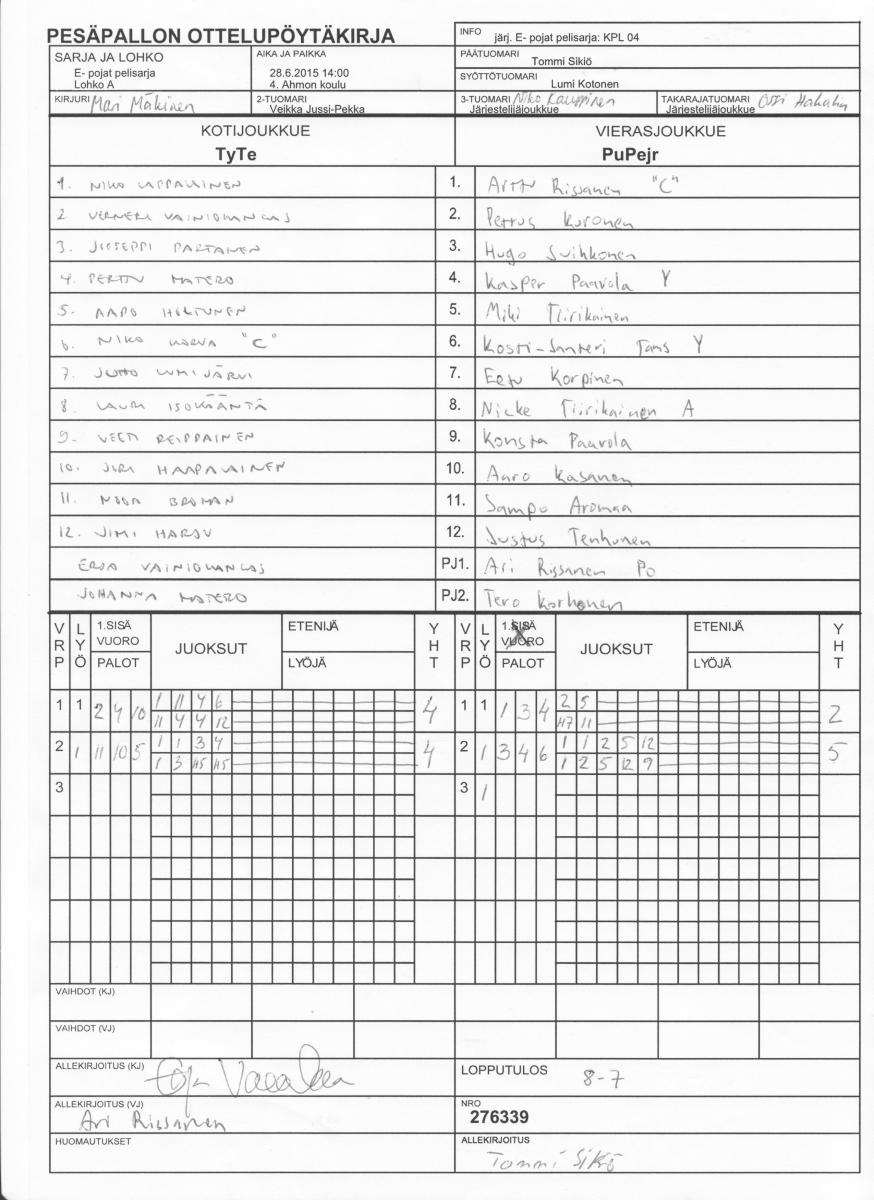 PESÄPALLON OTTELUPÖYTÄKIRJA
INFO järj. E- pojat pelisarja: KPL 04
SARJA JA LOHKO
E- pojat pelisarja
Lohko A
AIKA JA PAIKKA
28.6.2015 14:00
4. Ahmon koulu
PÄÄTUOMARI
Tommi Sikiö
SYÖTTÖTUOMARI
Lumi Kotonen
KIRJURI Mari Mäkinen
2-TUOMARI
Veikka Jussi-Pekka
3-TUOMARI Niko Kauppinen
Järjestelijäjoukkue
TAKARAJATUOMARI Ossi
Järjestelijäjoukkue
KOTIJOUKKUE
TyTe
VIERASJOUKKUE
PuPejr
1. NIKO LAPPALAINEN 1. Arttu Rissanen "C"
2 VERNERI VAINIOKANGAS 2. Petrus Kuronen
3. JOOSEPPI PARTANEN 3. Hugo Suihkonen
4. PERTTU MATERO 4. Kasper Paavola Y
5. AAPO HOLTUNEN 5. Miki Tiirikainen
6. NIKO KORVA "C" 6. Kosti-Santeri Tams Y
7. LUMIJÄRVI 7. Eetu Korpinen
8. LAURI ISOKÄÄNTÄ 8. Nicke Tiirikainen A
9. VEETI REIPPAINEN 9. Konsta Paavola
10. JIRI HAAPALAINEN 10. Aaro Kasanen
11. NOOA BROMAN 11. Sampo Aromaa
12. JIMI HARJU 12. Justus Tenhunen
ERJA VAINIOKANGAS PJ1. Ari Rissanen Po
JOHANNA MATERO PJ2. Tero Korhonen
VRP LYÖ 1.SISÄ VUORO PALOT JUOKSUT ETENIJÄ LYÖJÄ YHT VRP LYÖ 1.SISÄ VUORO PALOT JUOKSUT ETENIJÄ LYÖJÄ YHT
1 1 2 4 10 1 11 4 6 4 1 1 1 3 4 2 5 2
11 4 4 12 H7 11
2 1 11 10 5 1 1 3 4 4 2 1 3 4 6 1 1 2 5 12 5
1 3 H5 H5 1 2 5 12 9
3 3 1
VAIHDOT (KJ)
VAIHDOT (VJ)
ALLEKIRJOITUS (KJ)
LOPPUTULOS 8-7
ALLEKIRJOITUS (VJ)
Ari Rissanen
NRO
276339
HUOMAUTUKSET
ALLEKIRJOITUS
Tommi Sikiö